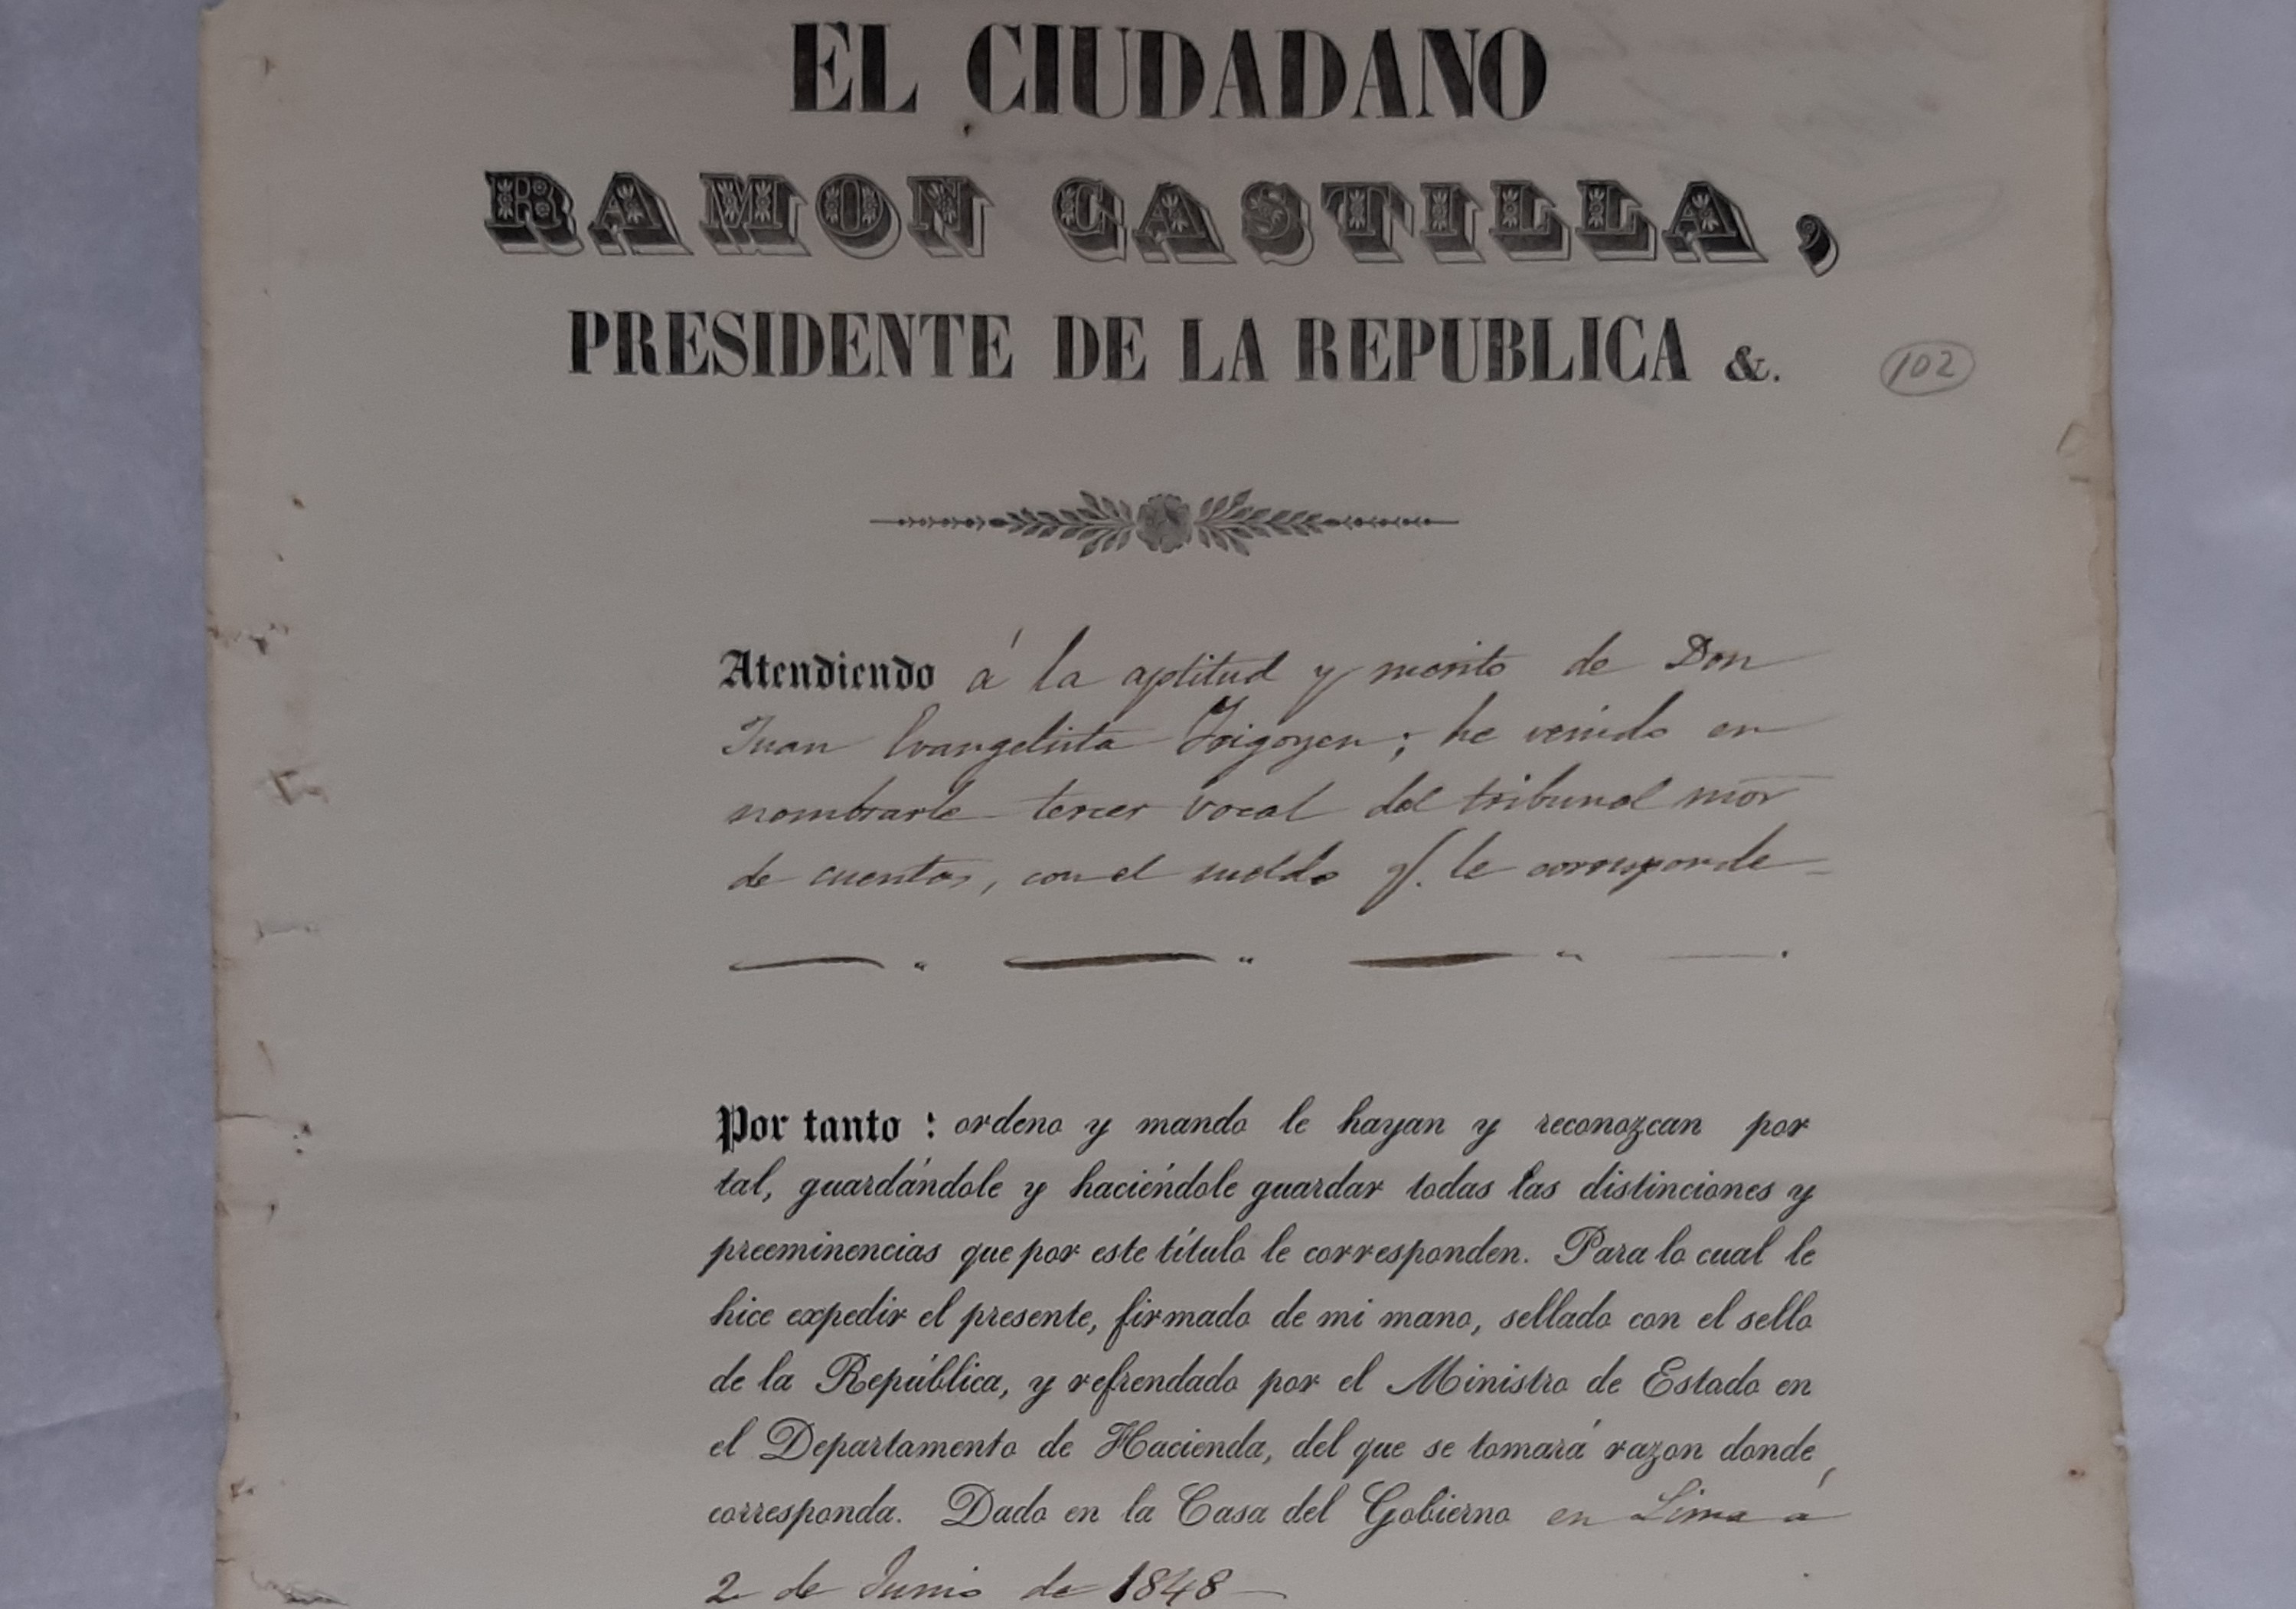 EL CIUDADANO
RAMON CASTILLA,
PRESIDENTE DE LA REPUBLICA &.
102
Atendiendo á la aptitud y merito de Don
Juan Evangelista Irigoyen; he venido en
nombrarle tercer vocal del tribunal mor
de cuentas, con el sueldo q. le corresponde
Por tanto: ordeno y mando le hayan y reconozcan por
tal, guardándole y haciéndole guardar todas las distinciones y
preeminencias que por este título le corresponden. Para lo cual le
hice expedir el presente, firmado de mi mano, sellado con el sello
de la República, y refrendado por el Ministro de Estado en
el Departamento de Hacienda, del que se tomará razon donde
corresponda. Dado en la Casa del Gobierno en Lima á
2 de Junio de 1848